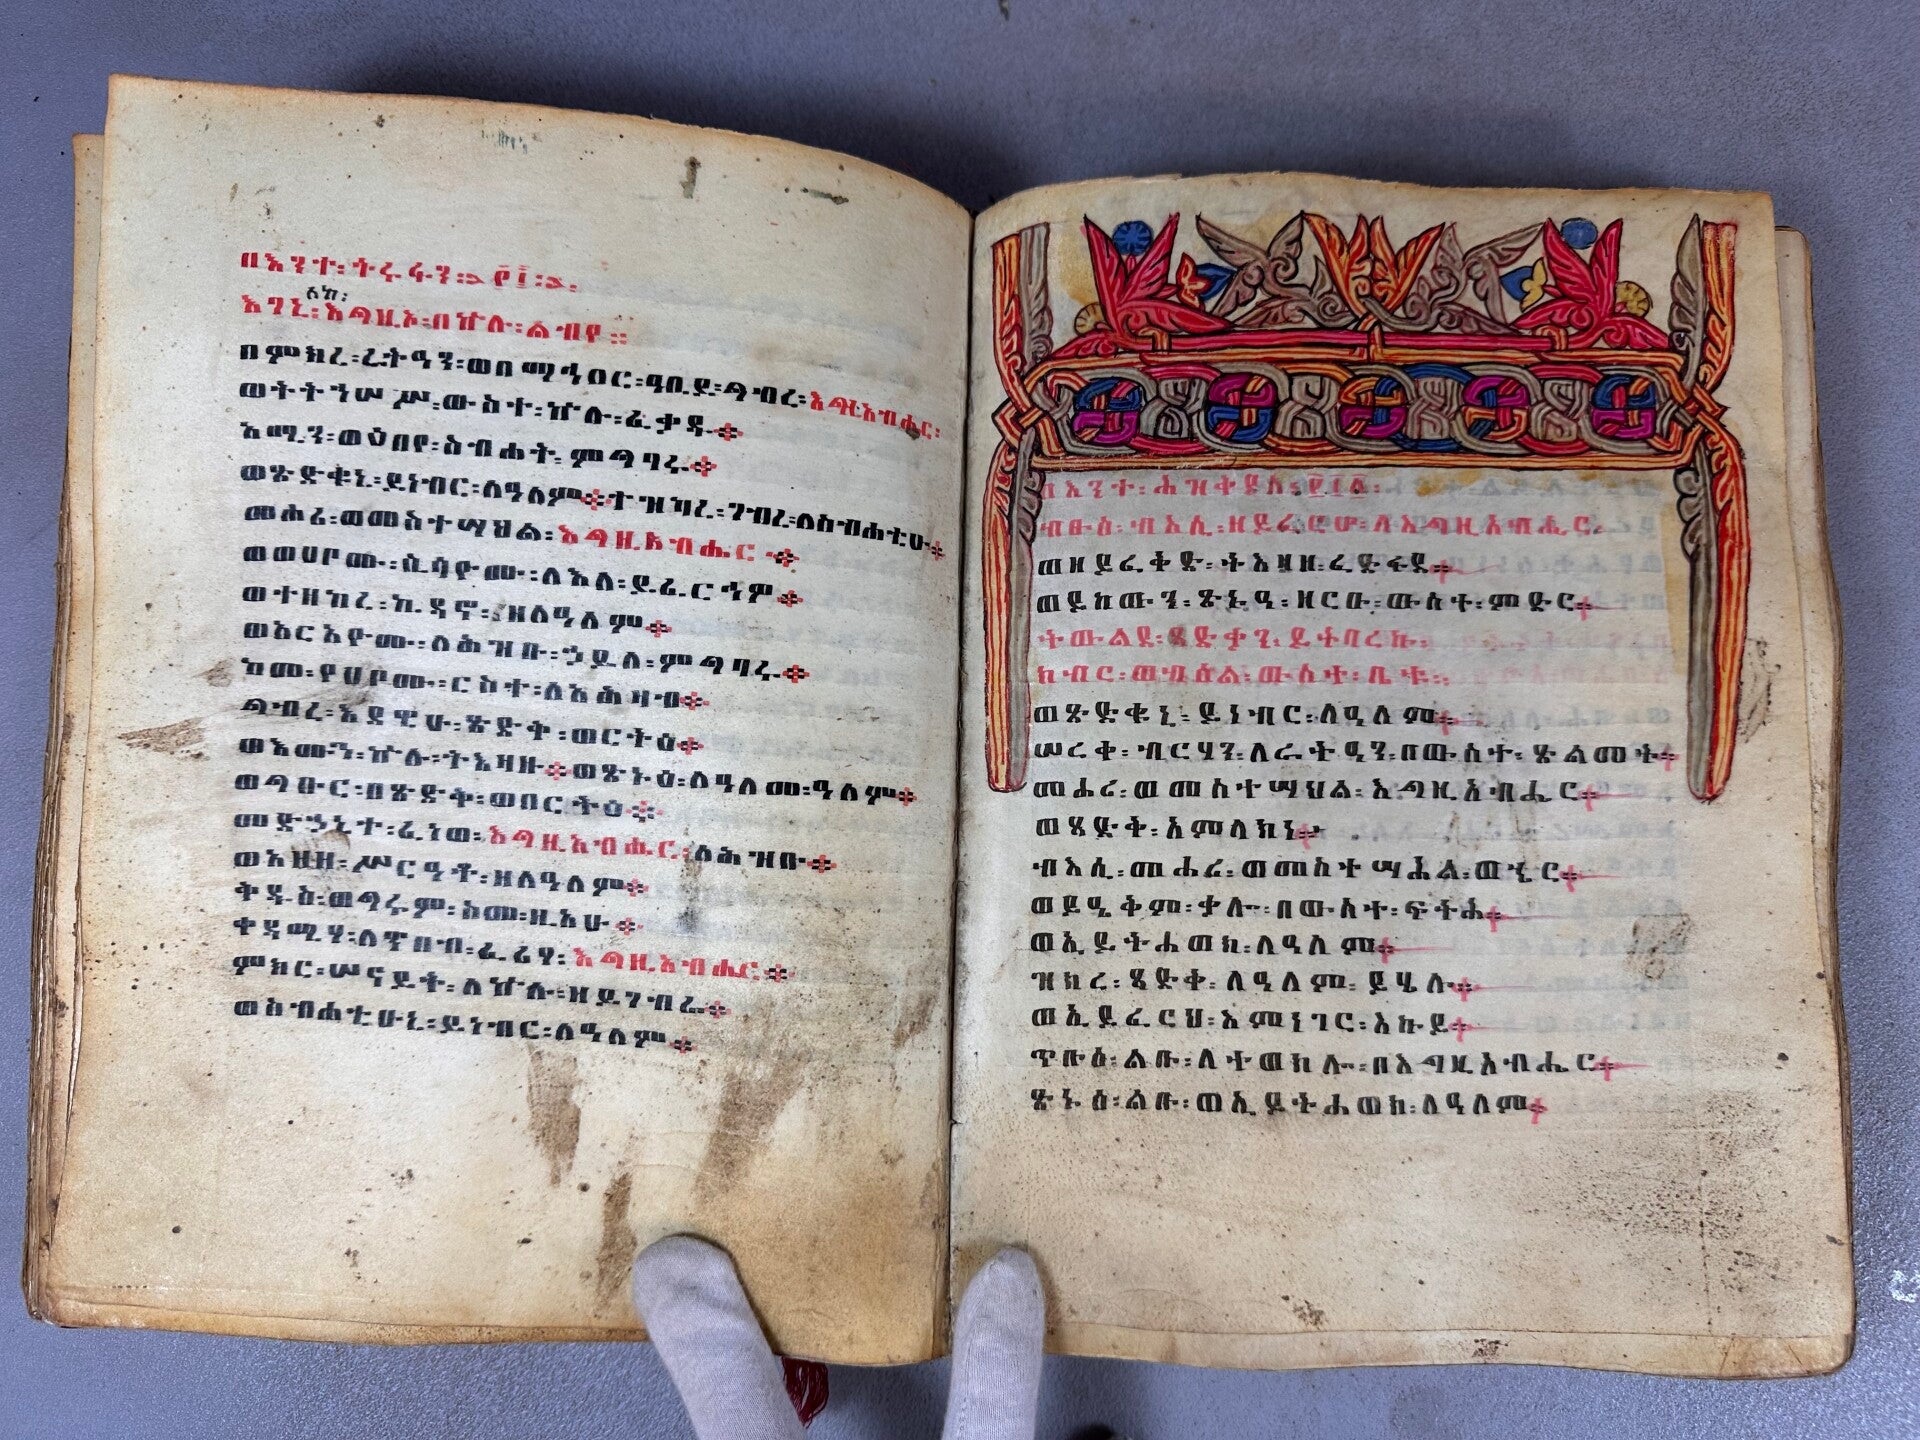 በእንተ፡ትሩፋን፡፻፲፡
ለከ፡
እገኒ፡እግዚኦ፡በኵሉ፡ልብየ።
በምክረ፡ረትዓን፡ወበማኅበር፡ዓቢይ፡ግብረ፡እግዚአብሔር፡
ወትትኀሠሥ፡ውስተ፡ኵሉ፡ፈቃዱ፨
አሚን፡ወዕበየ፡ስብሐት፡ምግባሩ፨
ወጽድቁኒ፡ይነብር፡ለዓለም፨ተዝካረ፡ገብረ፡ለስብሐቲሁ፨
መሐሪ፡ወመስተሣህል፡እግዚአብሔር፨
ወወሀቦሙ፡ሲሳዮሙ፡ለእለ፡ይፈርኅዎ፨
ወተዘከረ፡ኪዳኖ፡ዘለዓለም፨
ወአርአዮሙ፡ለሕዝቡ፡ኃይለ፡ምግባሩ፨
ከመ፡የሀቦሙ፡ርስተ፡ለአሕዛብ፨
ግብረ፡እደዊሁ፡ጽድቅ፡ወርትዕ፨
ወእሙን፡ኵሉ፡ትእዛዙ፨ወጽኑዕ፡ለዓለመ፡ዓለም፨
ወግቡር፡በጽድቅ፡ወበርትዕ፨
መድኃኒተ፡ፈነወ፡እግዚአብሔር፡ለሕዝቡ፨
ወአዘዘ፡ሥርዓቶ፡ዘለዓለም፨
ቅዱስ፡ወግሩም፡ስሙ፡ዚአሁ፨
ቀዳሚሃ፡ለጥበብ፡ፈሪሃ፡እግዚአብሔር፨
ምክር፡ሠናይት፡ለኵሉ፡ዘይገብራ፨
ወስብሐቲሁኒ፡ይነብር፡ለዓለም፨
በእንተ፡ሕዝቅያስ፡፻፲፩፡
ብፁዕ፡ብእሲ፡ዘይፈርሆ፡ለእግዚአብሔር።
ወዘይፈቅድ፡ትእዛዘ፡ፈድፋደ፨
ወይከውን፡ጽኑዓ፡ዘርዑ፡ውስተ፡ምድር፨
ትውልደ፡ጻድቃን፡ይትባረኩ፡
ክብር፡ወብዕል፡ውስተ፡ቤቱ፡።
ወጽድቁኒ፡ይነብር፡ለዓለም፨
ሠረቀ፡ብርሃን፡ለራትዓን፡በውስተ፡ጽልመት፨
መሐሪ፡ወመስተሣህል፡እግዚአብሔር፨
ወጻድቅ፡አምላክነ፨
ብእሲ፡መሐሪ፡ወመስተሣሕል፡ወኄር፨
ወይዔቅም፡ቃሎ፡በውስተ፡ፍትሕ፨
ወኢይትሐወክ፡ለዓለም፨
ዝክረ፡ጻድቅ፡ለዓለም፡ይሄሉ፨
ወኢይፈርህ፡እምነገር፡እኩይ፨
ጥቡዕ፡ልቡ፡ለተወክሎ፡በእግዚአብሔር፨
ጽኑዕ፡ልቡ፡ወኢይትሐወክ፡ለዓለም፨